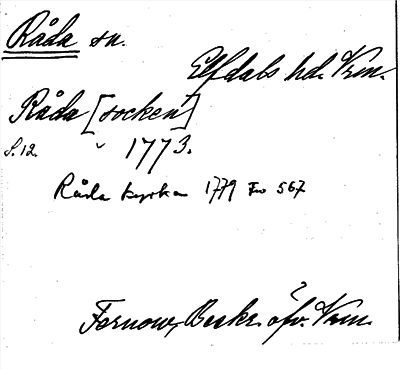 Råda sn.
Elfdals hd. Vrm.
Råda [socken]
S. 12. " 1773.
Råda kyrka 1779 Fo 567
Fernow, Beskr. öfv. Vrm.